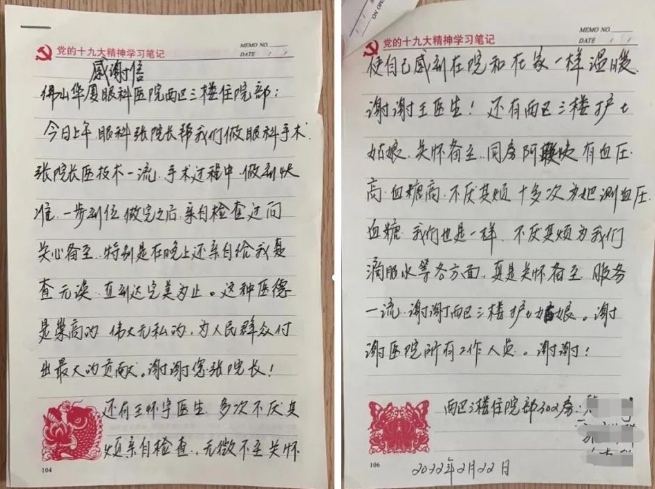 党的十九大精神学习笔记
MEMO NO.
DATE
感谢信
佛山华厦眼科医院西区三楼住院部:
今日上午眼科张院长帮我们做眼科手术.
张院长医技术一流.手术过程中做到快
准.一步到位做完之后.亲自检查过问
关心备至.特别是在晚上还亲自给我复
查无误.直到达完美为止。这种医德
是崇高的 伟大无私的,为人民群众付
出最大的贡献。谢谢您张院长!
还有王怀宇医生 多次不厌其
烦亲自检查.无微不至关怀
104
党的十九大精神学习笔记
MEMO NO.
DATE
使自己感到在院和在家一样温暖
谢谢王医生! 还有西区三楼护士
姑娘.关怀备至.同房阿 有血压
高.血糖高.不厌其烦十多次为她测血压
血糖.我们也是一样.不厌其烦为我们
滴眼水等各方面.真是关怀备至.服务
一流.谢谢西区三楼护士姑娘。谢
谢医院所有工作人员。谢谢!
西区三楼住院部302房:
2022年2月22日
106